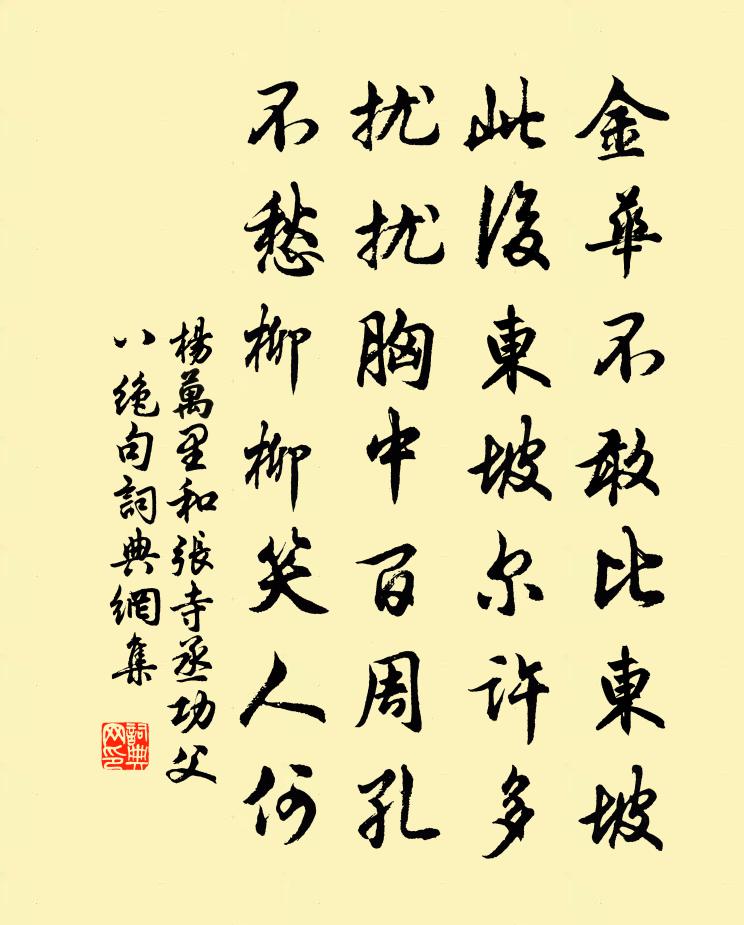 金華不敢比東坡
此後東坡尔許多
扰扰胸中百周孔
不愁柳柳笑人何
楊萬里和張寺丞功父
八絶句詞典網集
詞典网印